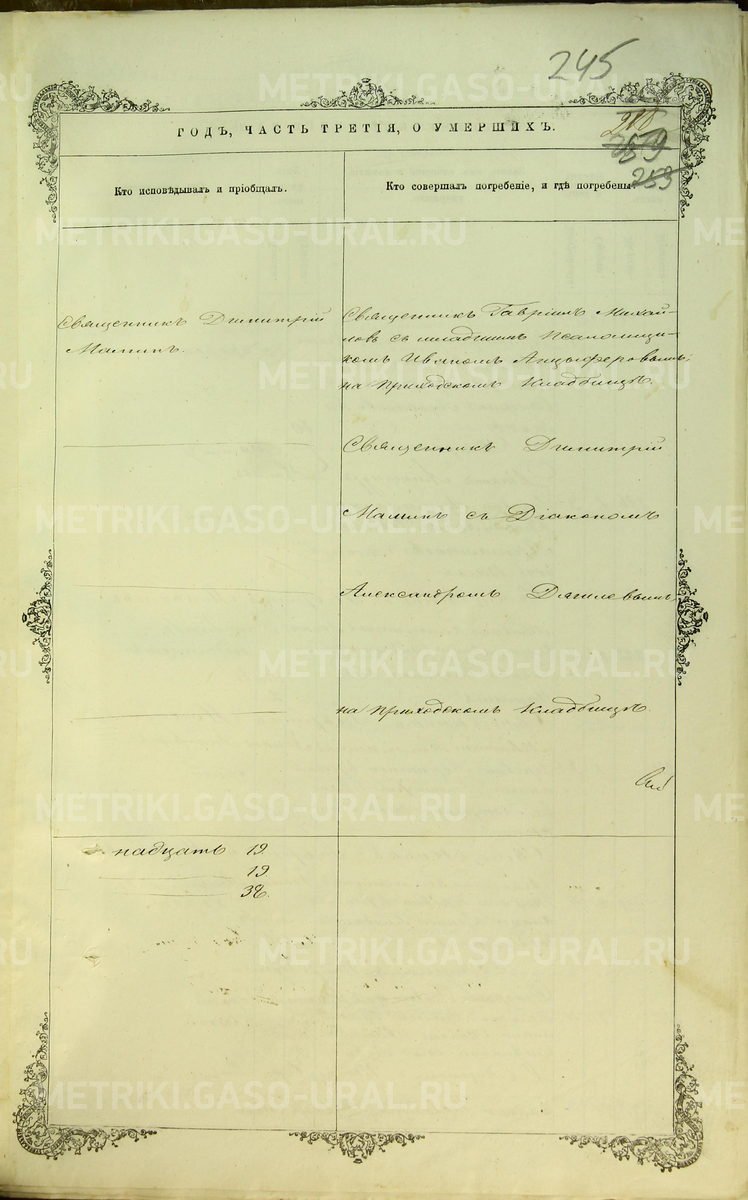 245
ГОДЪ, ЧАСТЬ ТРЕТІЯ, О УМЕРШИХЪ.
210
259
253
Кто исповѣдывалъ и пріобщалъ.
Кто совершалъ погребеніе, и гдѣ погребены.
Священникъ Димитрій
Маминъ.
Священникъ Гавріилъ Михай-
ловъ съ младшимъ Псаломщи-
комъ Иваномъ Анцыферовымъ;
на приходскомъ Кладбищѣ.
Священникъ Димитрій
Маминъ съ Діакономъ
Александромъ
на приходскомъ Кладбищѣ.
надцать 19
19
38.
METRIKI.GASO-URAL.RU